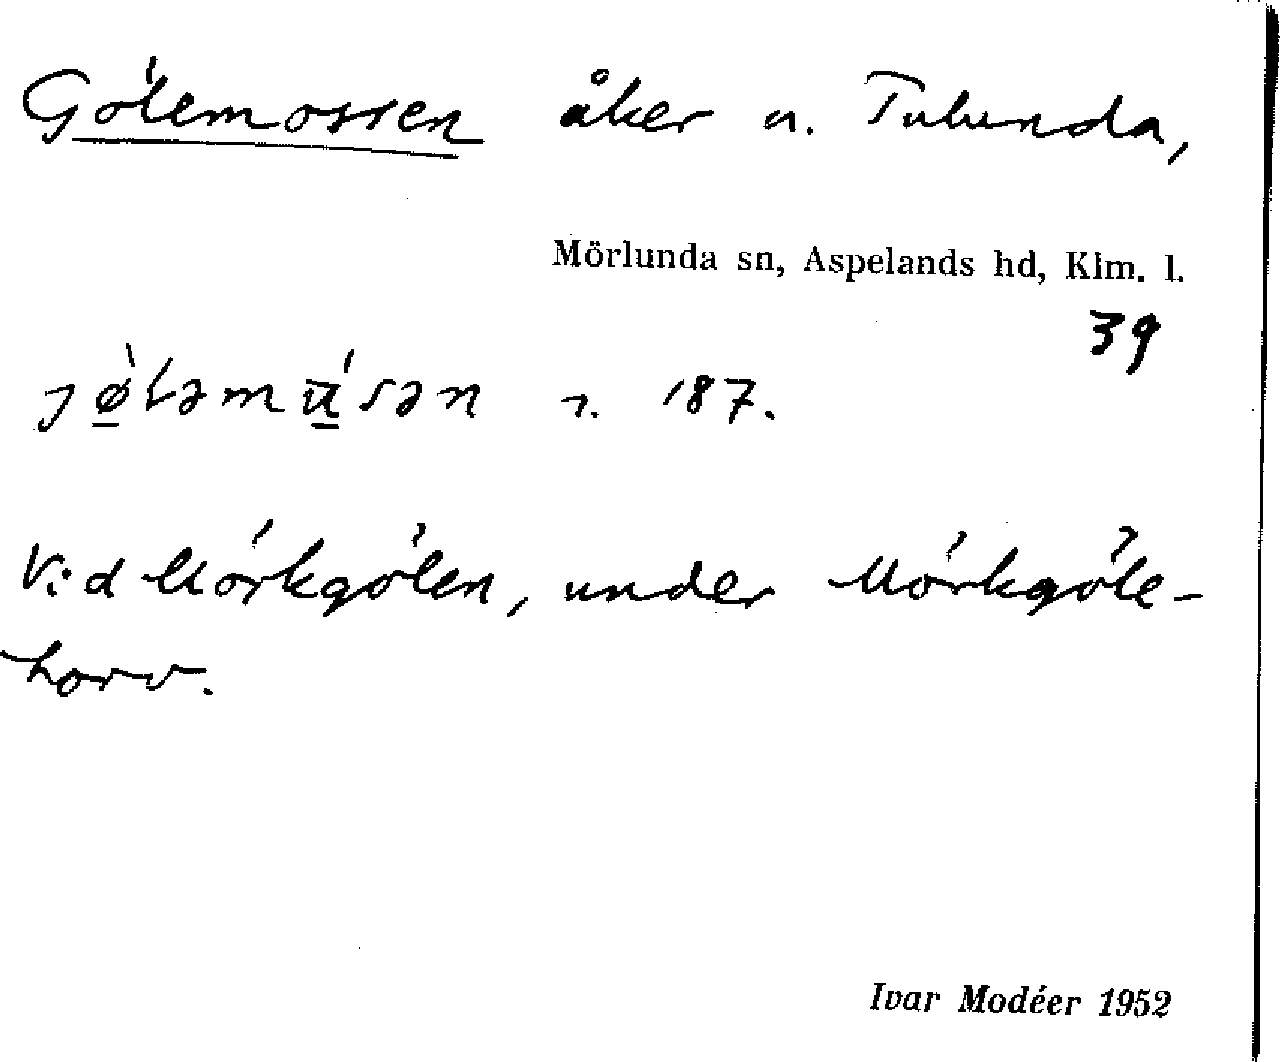 Gölemossen åker n. Tulunda,
Mörlunda sn, Aspelands hd, Klm. l.
39
r. 187.
Vid Mörkgölen, under Mörkgöle-
horv.
Ivar Modéer 1952